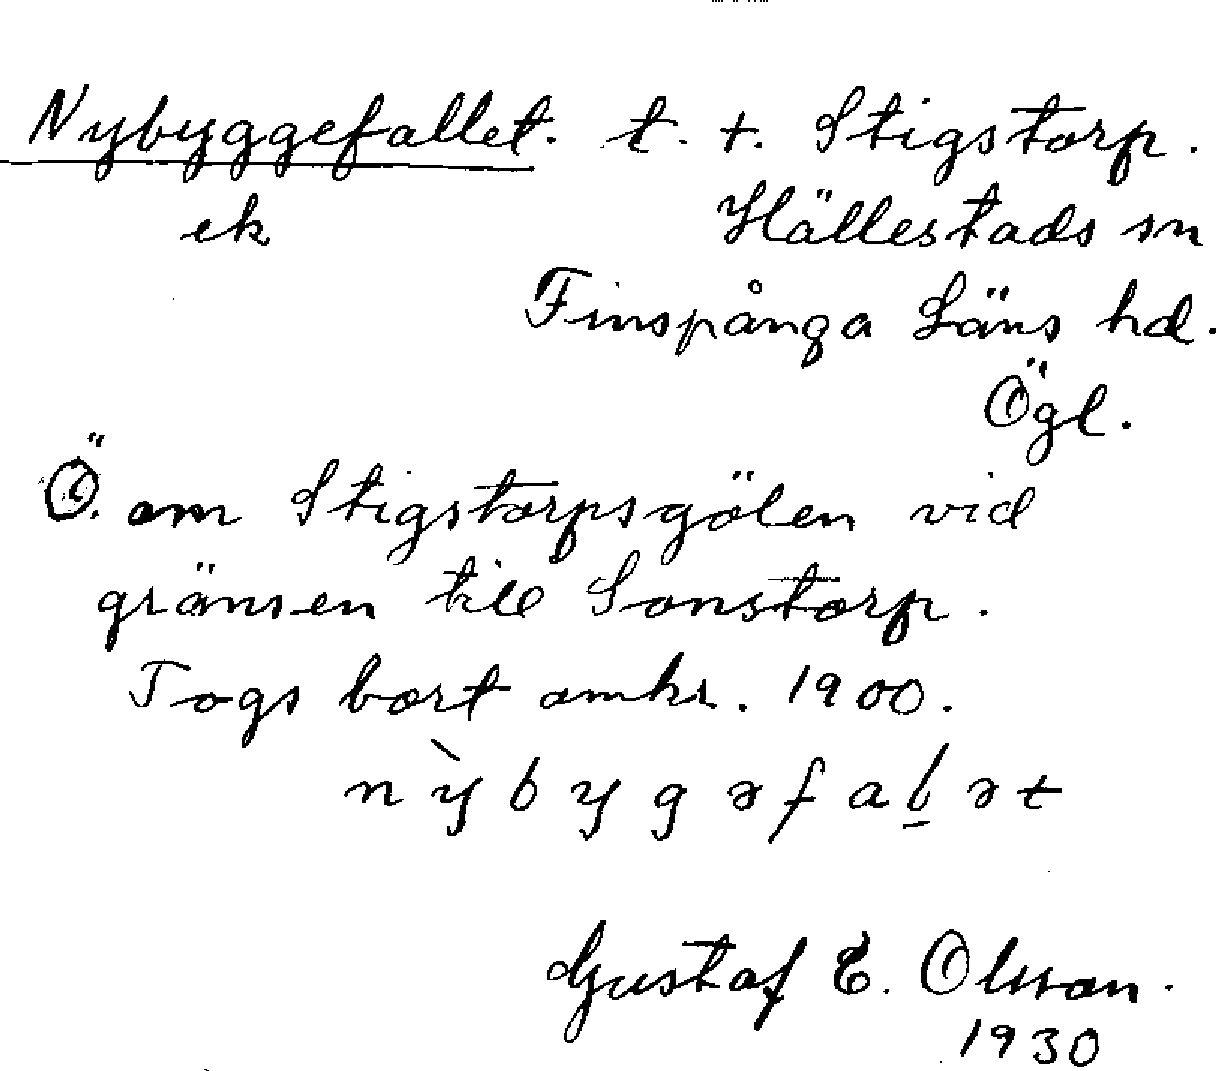 Nybyggefallet. t. t. Stigstorp.
ek Hällestads sn
Finspånga Läns hd.
Ögl.
Ö. om Stigstorpsgölen vid
gränsen till Sonstorp.
Togs bort omkr. 1900.
nỳbygəfaḻət
Gustaf E. Olsson.
1930